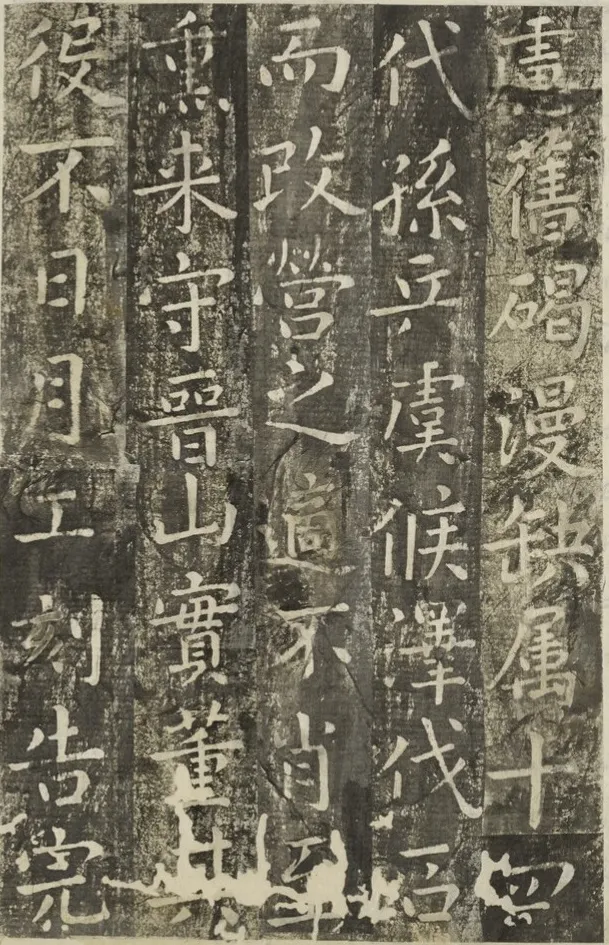 舊碣漫缺属十四
代孫兵虞候澤伐石
而改營之適不肖
熏来守晉山實董其
役不日月工刻告完